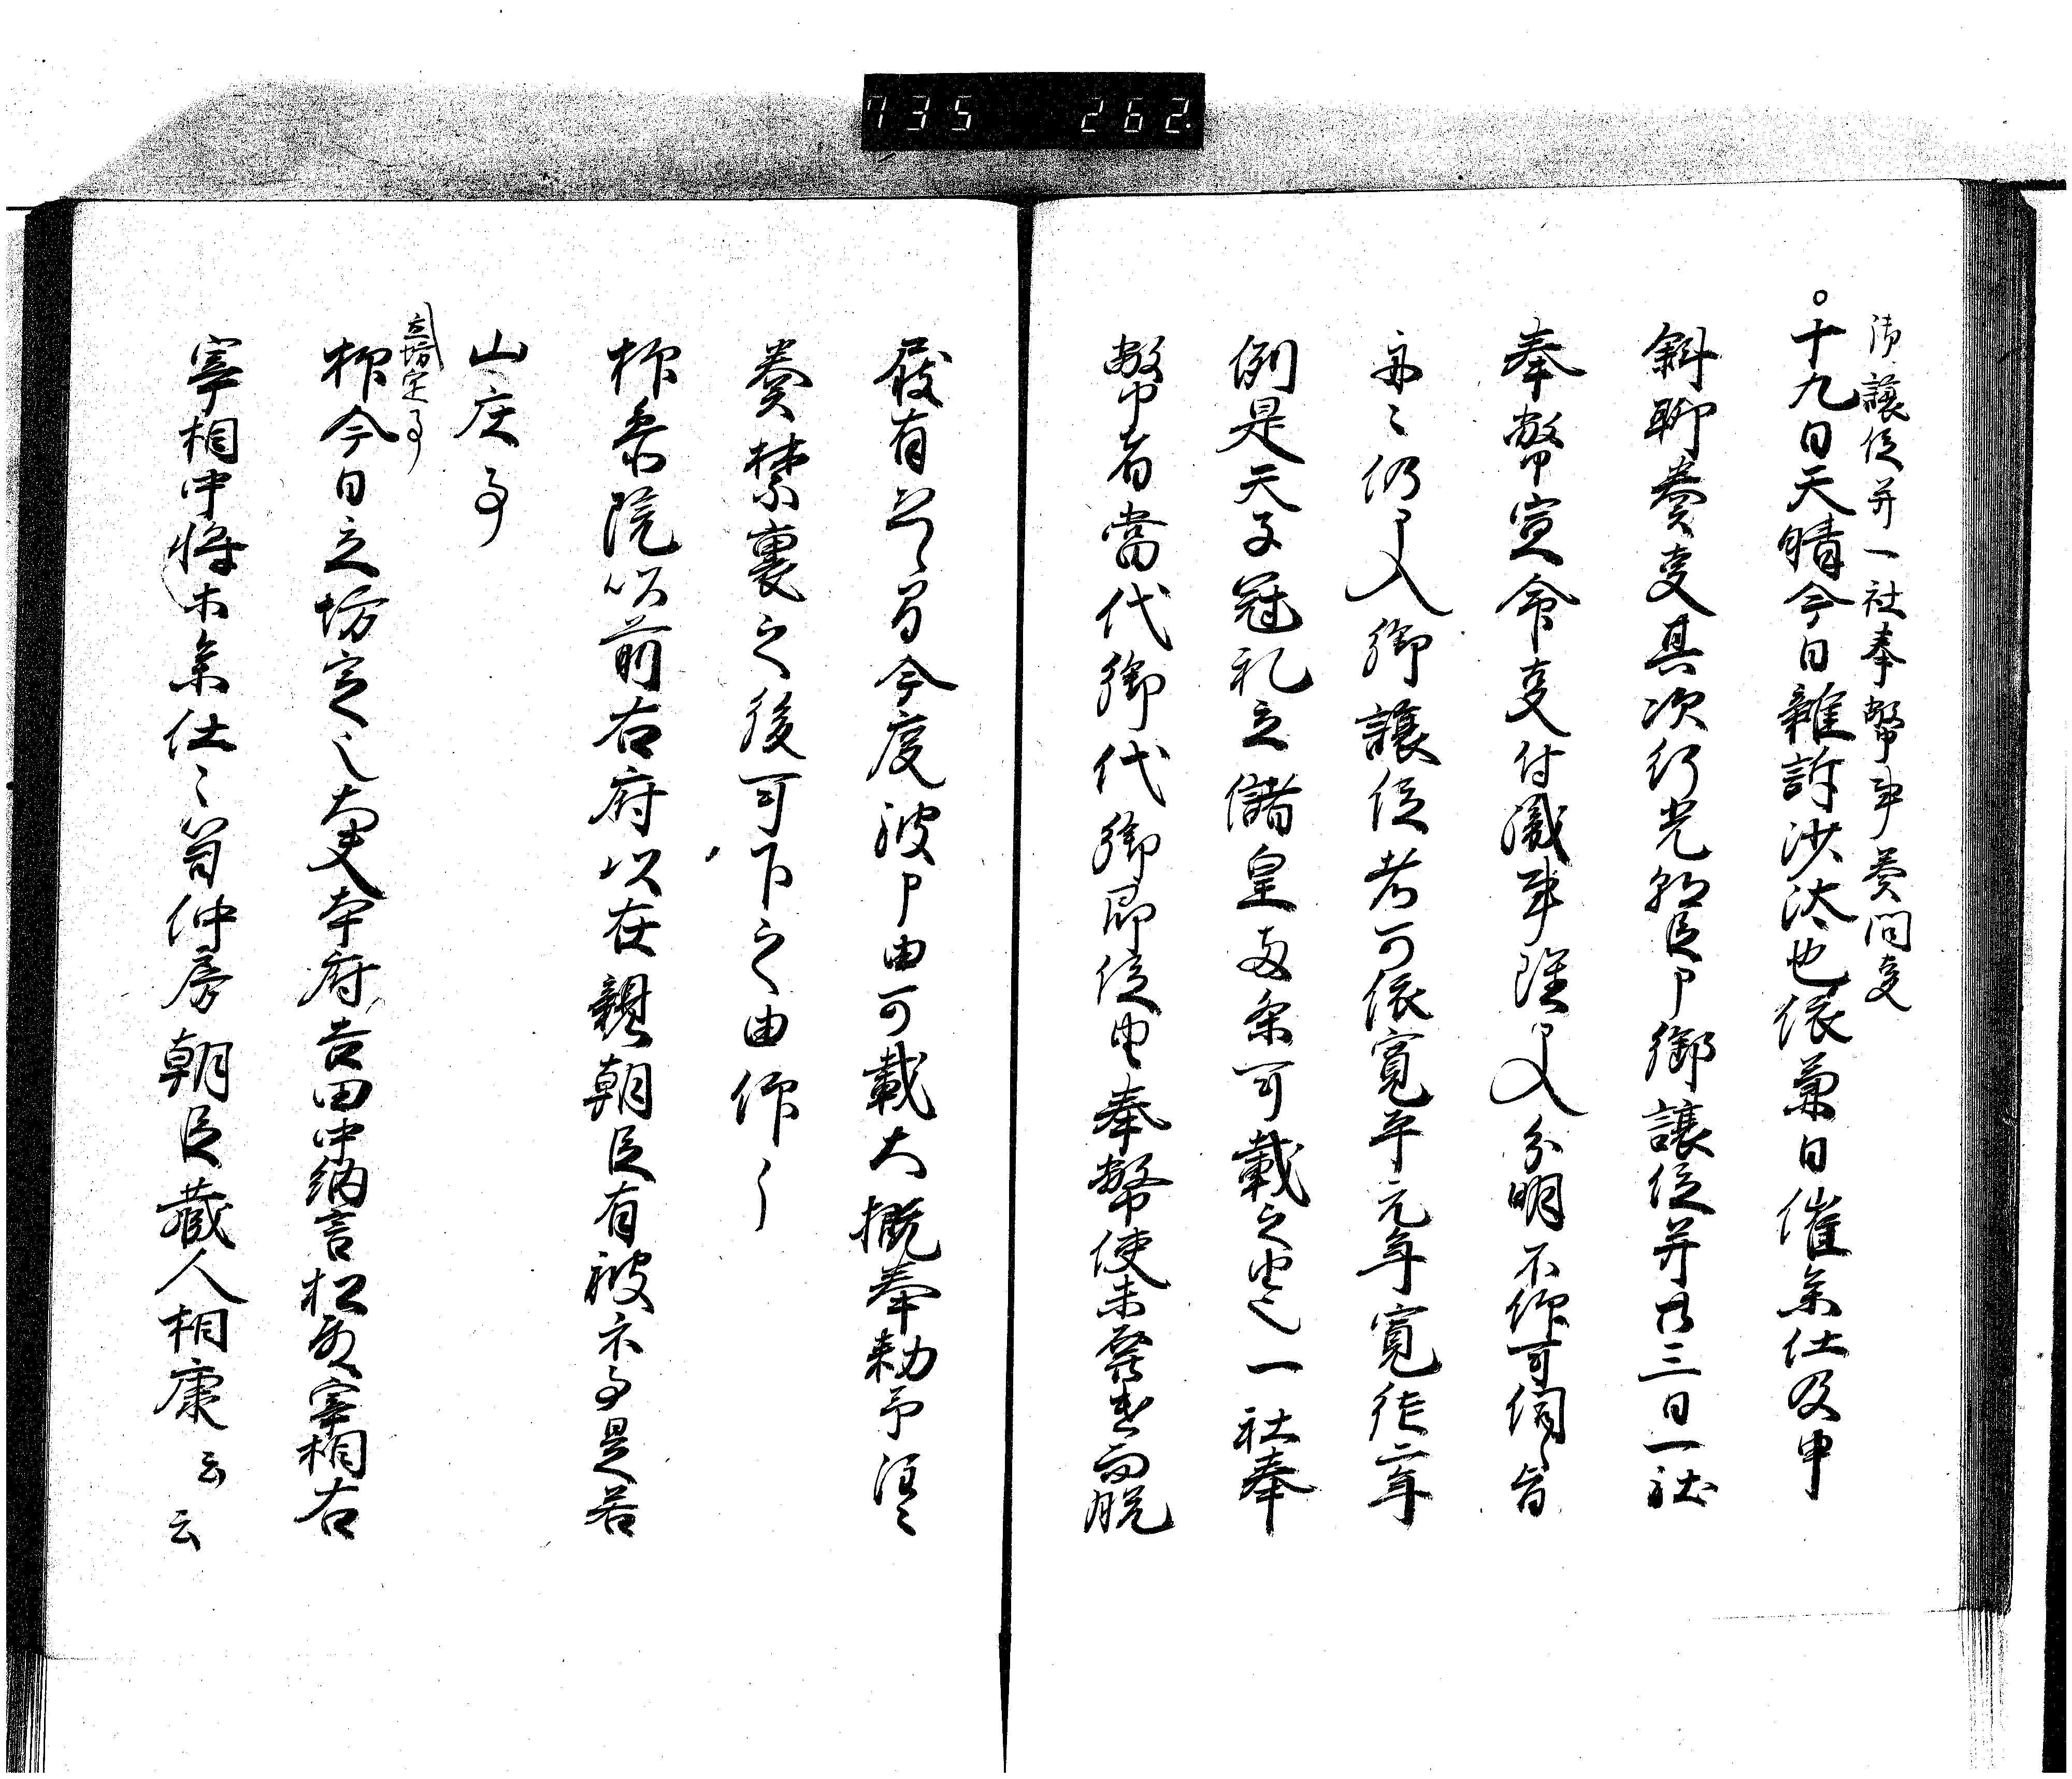 735 262.
御譲位并一社奉幣事奏聞事
○十九日天晴今日雑訴沙汰也依兼日催参仕及申
斜聊奏事其次行光朝臣申御譲位并廿三日一社
奉幣宣命事付職事 分明不仰可伺旨
仍 入御譲位者可依寛平元年寛徳二年
例是天子冠礼之儲皇両条可載之由也一社奉
幣者当代御代御即位由奉幣使未発遣而脱
屣有 今度被申由可載大概奉勅予
奏禁裏之後可下之由仰了
抑参院以前右府以在親朝臣有被示事是若
山庄事
立坊定事
抑今日立坊定也大夫本府吉田中納言松殿宰相右
宰相中将等参仕也 仲房朝臣蔵人相康云云